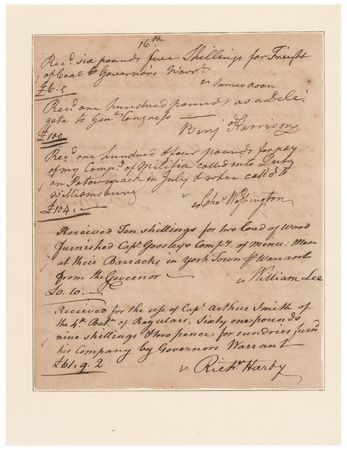 16th
Recd. six pounds five Shillings for Freight
of Coal to Governor's Warrt.
£6.5
Recd. one hundred pounds as a dele-
gate to Genl. Congress
Benj Harrison
£100
Recd. one hundred & four pounds for pay
of my Compy. of Militia called into Duty
on Potowmack in July & when called to
Williamsburg
£104..
Washington
Received Ten shillings for two load of wood
furnished Capt. Gooseley's Compy. of minute Men
at their Barracks in York Town Warrant
from the Governor
William Lee
£0.10.
Received for the use of Capt. Arthur Smith of
the 4th Batn. of Regulars, Sixty one pounds
nine shillings & two pence for sundries furnd.
his Company by Governors Warrant
£61.9.2
Richd. Hardy